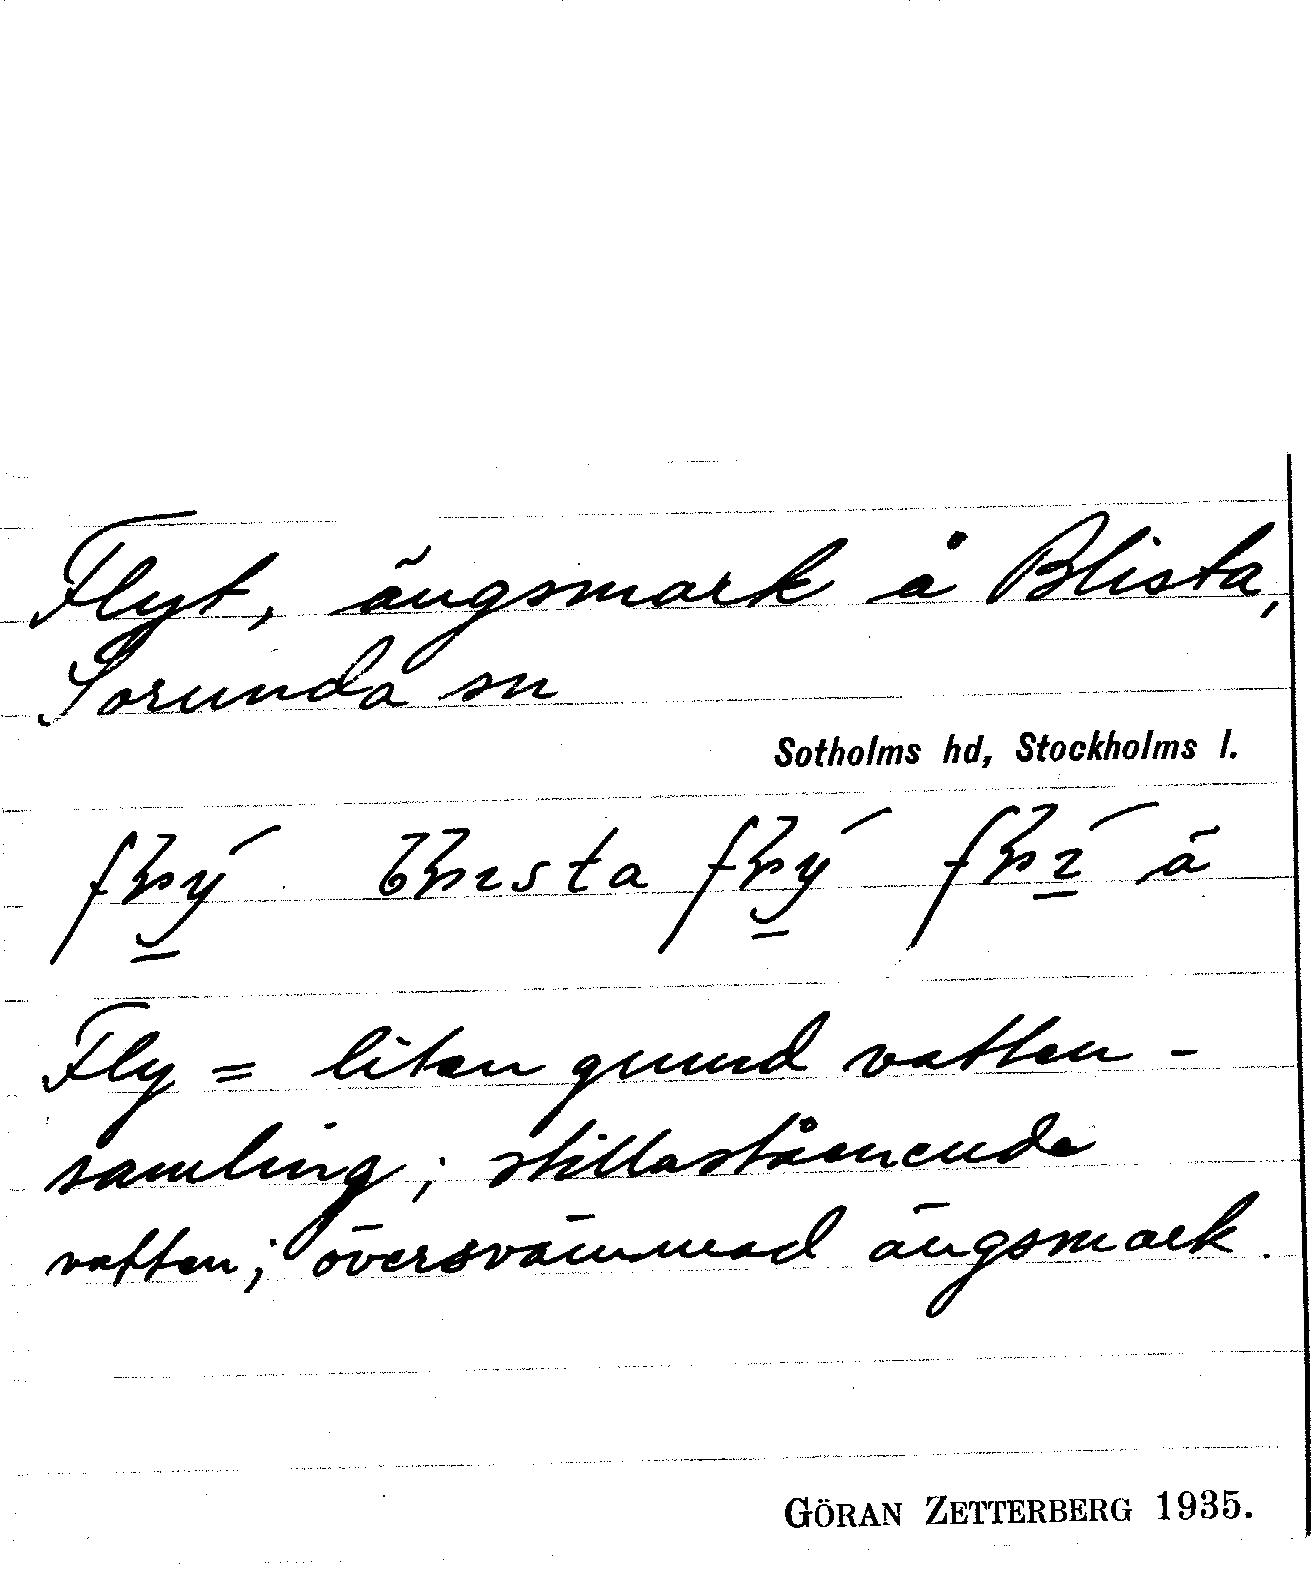 Flyt, ängsmark å Blista,
Sorunda sn
Sotholms hd, Stockholms l.
Fly = liten grund vatten-
samling; stillaståenende
vatten; översvämmad ängsmark.
GÖRAN ZETTERBERG 1935.